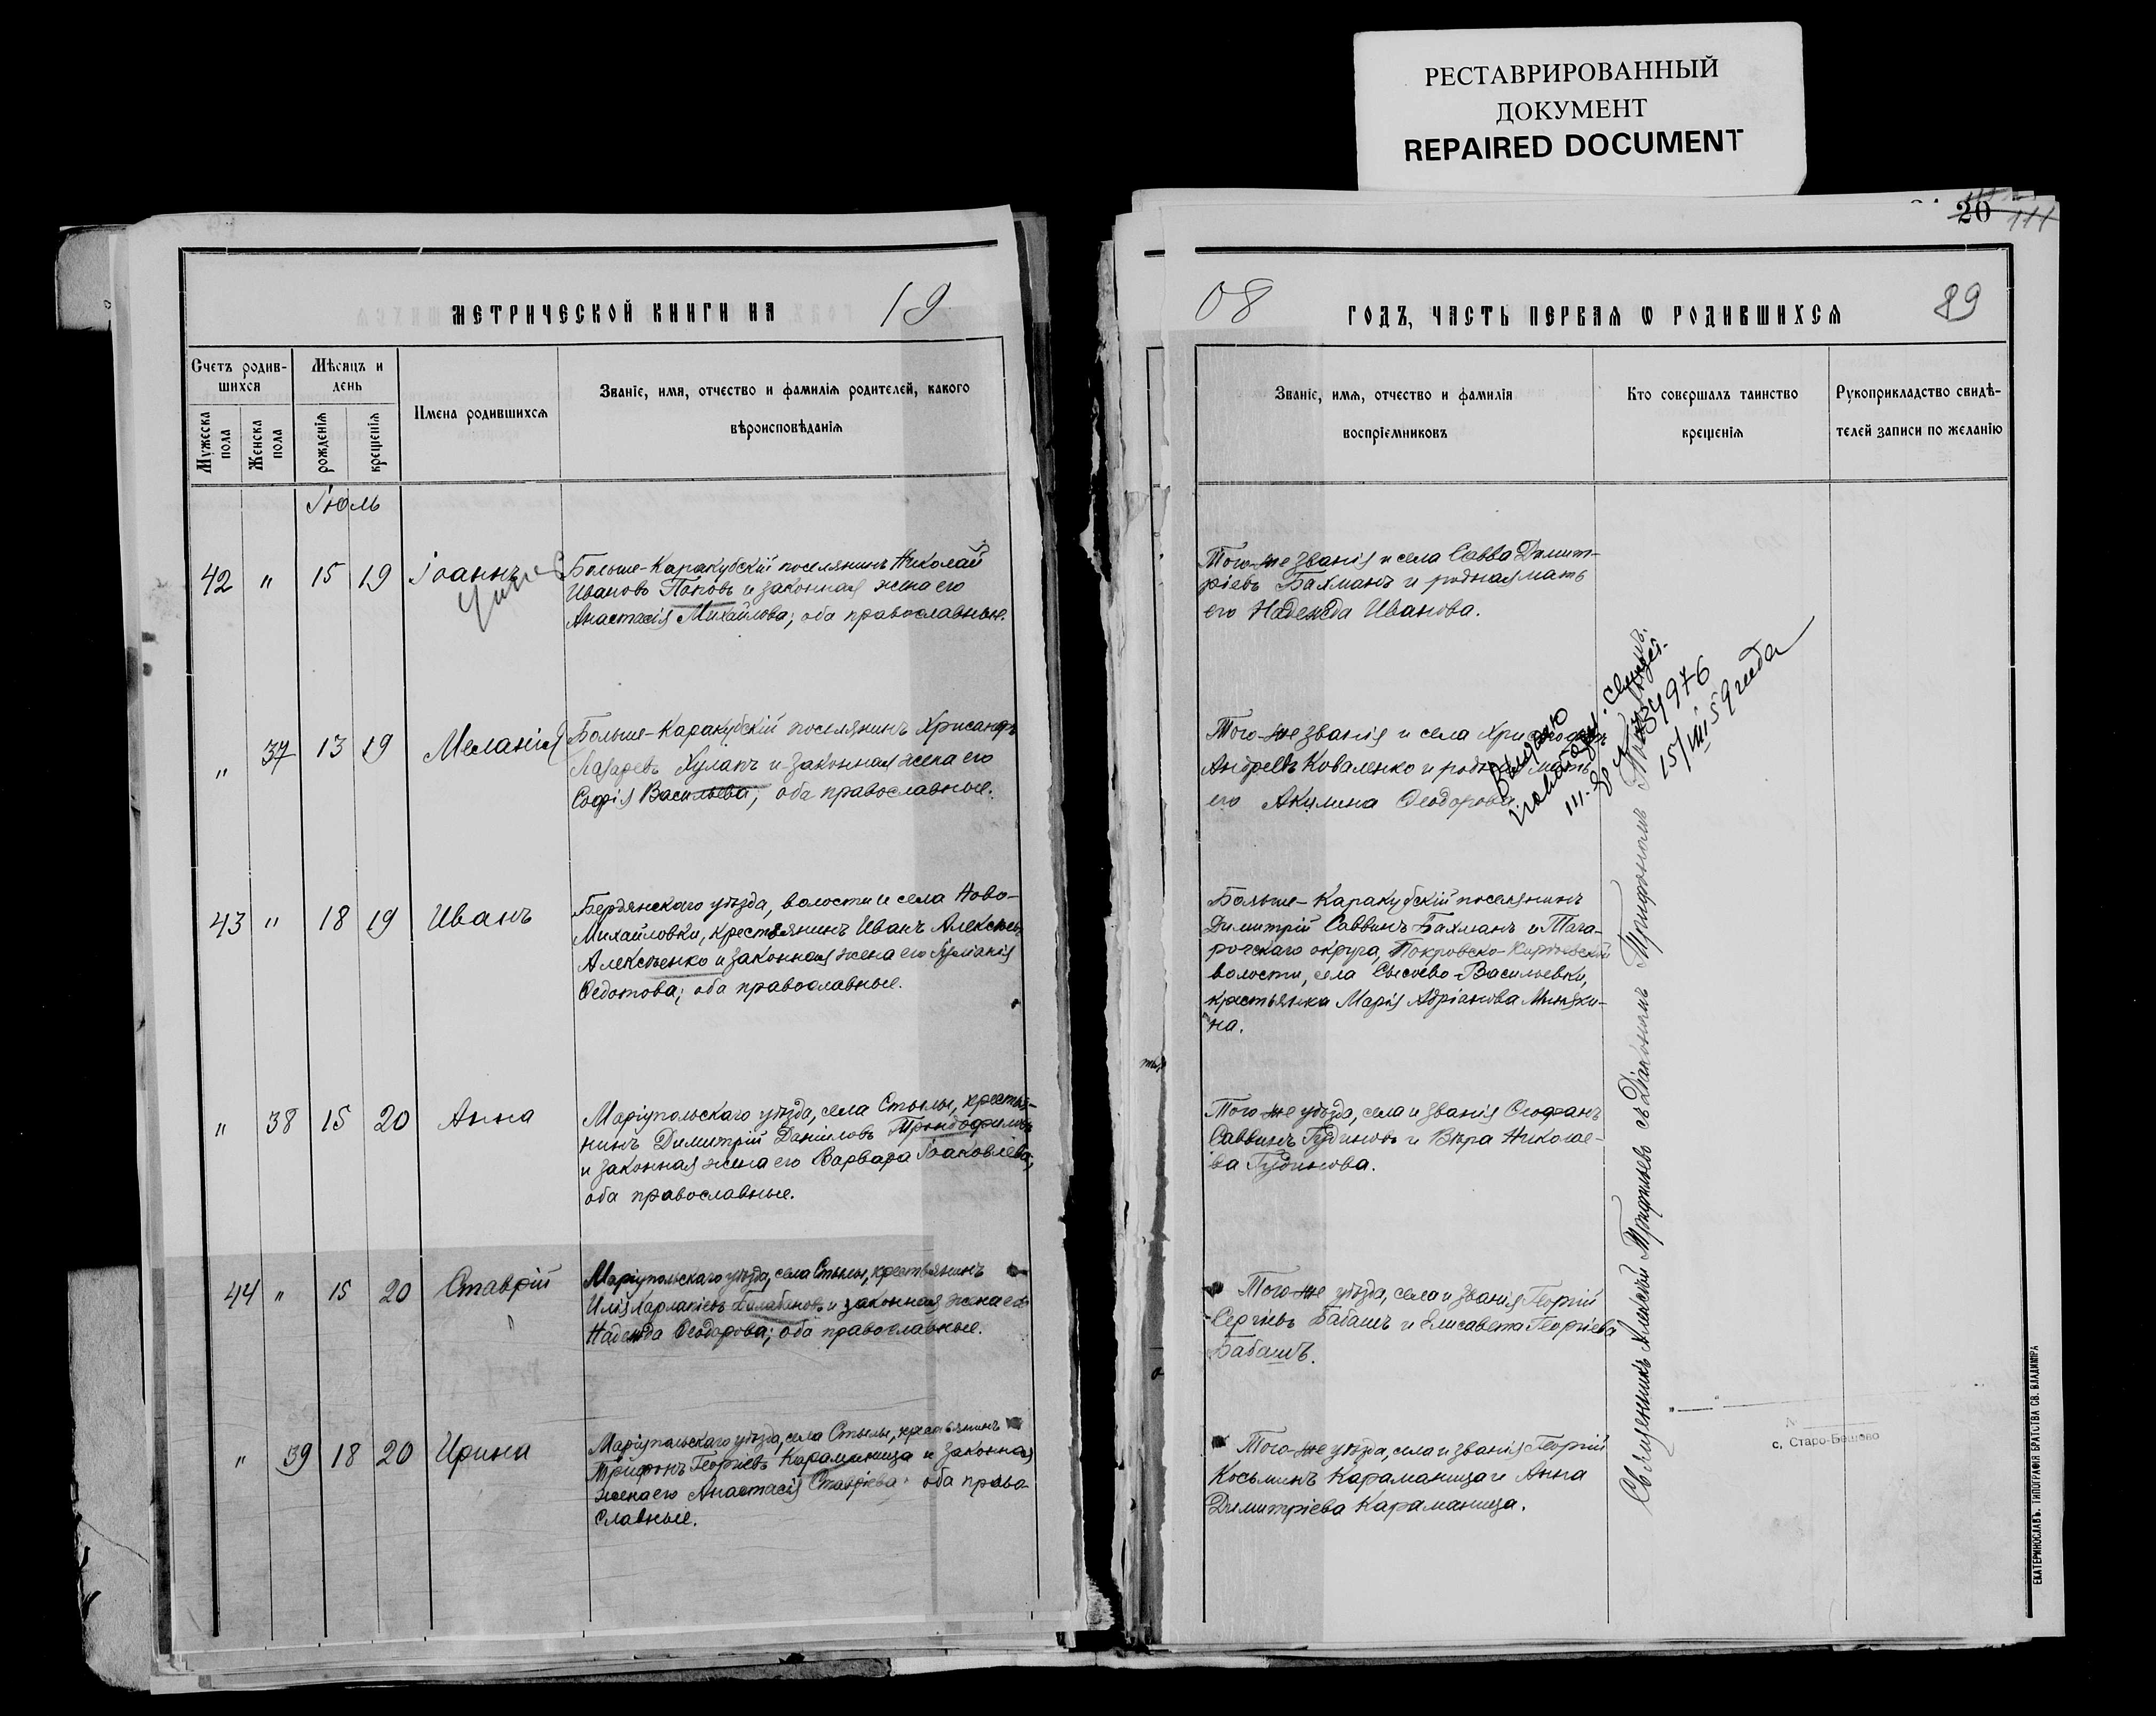 РЕСТАВРИРОВАННЫЙ
ДОКУМЕНТ
REPAIRED DOCUMENT
20
111
МЕТРИЧЕСКОЙ КНИГИ НА 19
Счетъ родив-
шихся
Мѣсяцъ и
день
Мужеска
пола
Женска
пола
рожденія
крещенія
Имена родившихся
Званіе, имя, отчество и фамилія родителей, какого
вѣроисповѣданія
Іюль
42 " 15 19 Іоаннъ
Больше-Каракубскій поселянинъ Николай
Ивановъ Поповъ и законная жена его
Анастасія Михайлова; оба православные.
" 37 13 19 Меланія
Больше-Каракубскій поселянинъ Хрисанфъ
Лазаревъ Хулахъ и законная жена его
Софія Васильева; оба православные.
43 " 18 19 Иванъ
Бердянскаго уѣзда, волости и села Ново-
Михайловки, крестьянинъ Иванъ Алексѣевъ
Алексѣенко и законная жена его
Ѳедотова; оба православные.
" 38 15 20 Анна
Маріупольскаго уѣзда, села Стылы, крестья-
нинъ Димитрій Даніиловъ
и законная жена его Варвара Іоаковлева;
оба православные.
44 " 15 20 Ставрій
Маріупольскаго уѣзда, села Стылы, крестьянинъ
Илія Харлапіевъ Балабановъ и законная жена его
Надежда Ѳеодорова; оба православные.
" 39 18 20 Ирина
Маріупольскаго уѣзда, села Стылы, крестьянинъ
Трифонъ Георгіевъ Караманица и законная
жена его Анастасія Ставріева; оба право-
славные.
08 ГОДЪ, ЧАСТЬ ПЕРВАЯ Ѡ РОДИВШИХСЯ 89
Званіе, имя, отчество и фамилія
воспріемниковъ
Кто совершалъ таинство
крещенія
Рукоприкладство свидѣ-
телей записи по желанію
Того-же званія и села Савва Димит-
ріевъ Бахманъ и родная мать
его Надежда Иванова.
Того-же званія и села
Андреевъ Коваленко и родная мать
его Акилина Ѳеодорова.
Больше-Каракубскій поселянинъ
Димитрій Саввинъ Бахманъ и Тага-
рогскаго округа, Покровско-Киреевской
волости, села Сысоево-Васильевки,
крестьянка Марія Адріанова Миняки-
на.
Того-же уѣзда, села и званія Ѳеофанъ
Саввинъ Гудиновъ и Вѣра Николае-
ва Гудинова.
Того-же уѣзда, села и званія Георгій
Сергіевъ Бабашъ и Елисавета Георгіева
Бабашъ.
Того-же уѣзда, села и званія Георгій
Косьминъ Караманица и Анна
Димитріева Караманица.
Священникъ Алексѣй Трифильевъ съ Діакономъ Трифономъ
Выдано
15/VIII 59 года
N
с. Старо-Бешево
ЕКАТЕРИНОСЛАВЪ. ТИПОГРАФІЯ БРАТСТВА СВ. ВЛАДИМІРА